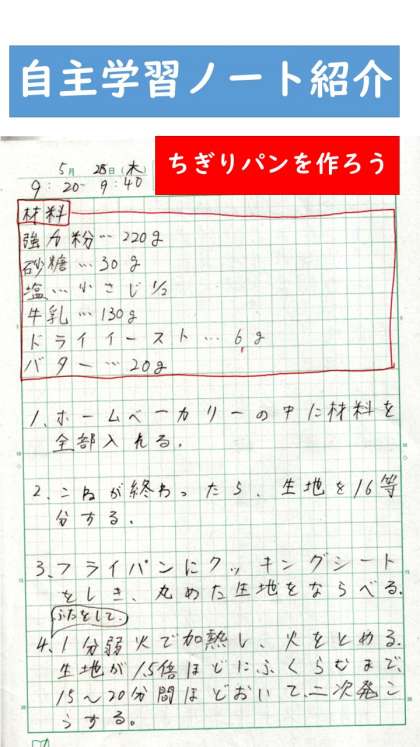 自主学習ノート紹介
ちぎりパンを作ろう
5月 28日(木)
9:20-9:40
材料
強力粉…220g
砂糖…30g
塩…小さじ1/2
牛乳…130g
ドライイースト…6g
バター…20g
1.ホームベーカリーの中に材料を
全部入れる.
2.こねが終わったら、生地を16等
分する.
3.フライパンにクッキングシート
をしき、丸めた生地をならべる.
ふたをして、
4.1分弱火で加熱し、火をとめる.
生地が1.5倍ほどにふくらむまで、
15〜20分間ほどおいて、二次発こ
うする。